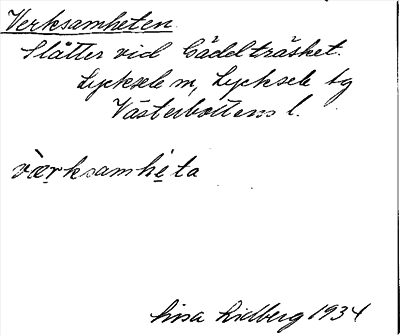 Verksamheten.
Slåtter vid Gäddträsket.
Lycksele m, Lycksele tg
Västerbottens l.
værksamhéta
Lisa Lidberg 1934